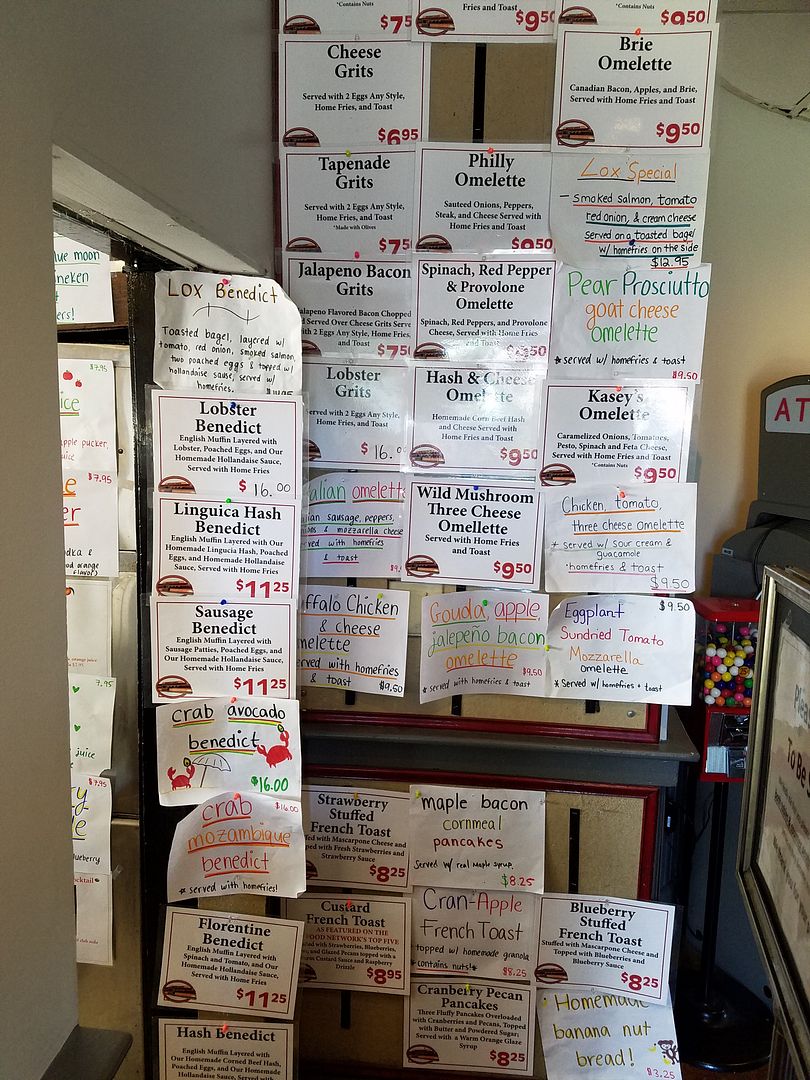 *Contains Nuts
$75
Fries and Toast
$950
*Contains Nuts
$950
Cheese
Grits
Served with 2 Eggs Any Style,
Home Fries, and Toast
$695
Brie
Omelette
Canadian Bacon, Apples, and Brie,
Served with Home Fries and Toast
$950
Tapenade
Grits
Served with 2 Eggs Any Style,
Home Fries, and Toast
*Made with Olives
$75
Philly
Omelette
Sauteed Onions, Peppers,
Steak, and Cheese Served with
Home Fries and Toast
$950
Lox Special
- smoked salmon, tomato
red onion, & cream cheese
served on a toasted bagel
w/ homefries on the side
$12.95
Jalapeno Bacon
Grits
alapeno Flavored Bacon Chopped
d Served Over Cheese Grits Serve
ith 2 Eggs Any Style, Home Fries,
and Toast
$750
Spinach, Red Pepper
& Provolone
Omelette
Spinach, Red Peppers, and Provolone
Cheese, Served with Home Fries
and Toast
$950
Pear Prosciutto
goat cheese
omelette
* served w/ homefries & toast
$9.50
Lobster
Grits
Served with 2 Eggs Any Style,
Home Fries, and Toast
$ 16.0
Hash & Cheese
Omelette
Homemade Corn Beef Hash
and Cheese Served with
Home Fries and Toast
$950
Kasey's
Omelette
Caramelized Onions, Tomatoes,
Pesto, Spinach and Feta Cheese,
Served with Home Fries and Toast
*Contains Nuts
$950
alian omelette
lian sausage, peppers,
ons & mozzarella cheese
ved with homefries
& toast
$9.
Wild Mushroom
Three Cheese
Omellette
Served with Home Fries
and Toast
$950
Chicken, tomato,
three cheese omelette
* served w/ sour cream &
guacamole
*homefries & toast
$9.50
ffalo Chicken
& cheese
melette
erved with homefries
& toast
$9.50
Gouda, apple,
jalepeño bacon
omelette
$9.50
* served with homefries & toast
$9.50
Eggplant
Sundried Tomato
Mozzarella
omelette
* Served w/ homefries + toast
Lox Benedict
Toasted bagel, layered w/
tomato, red onion, smoked salmon,
two poached eggs & topped w/
hollandaise sause, served w/
homefries.
Lobster
Benedict
English Muffin Layered with
Lobster, Poached Eggs, and Our
Homemade Hollandaise Sauce,
Served with Home Fries
$ 16.00
Linguica Hash
Benedict
English Muffin Layered with Our
Homemade Lingucia Hash, Poached
Eggs, and Homemade Hollandaise
Sauce, Served with Home Fries
$1125
Sausage
Benedict
English Muffin Layered with
Sausage Patties, Poached Eggs, and
Our Homemade Hollandaise Sauce,
Served with Home Fries
$1125
crab avocado
benedict
$16.00
$16.00
crab
mozambique
benedict
* served with homefries!
Florentine
Benedict
English Muffin Layered with
Spinach and Tomato, and Our
Homemade Hollandaise Sauce,
Served with Home Fries
$1125
Hash Benedict
English Muffin Layered with
Our Homemade Corned Beef Hash,
Poached Eggs, and Our Homemade
Hollandaise Sauce, Served with
Strawberry
Stuffed
French Toast
ed with Mascarpone Cheese and
pped with Fresh Strawberries and
Strawberry Sauce
$825
maple bacon
cornmeal
pancakes
Served w/ real maple syrup.
$8.25
Custard
French Toast
AS FEATURED ON THE
OOD NETWORK'S TOP FIVE
ed with Strawberries, Blueberries,
and Glazed Pecans topped with a
Custard Sauce and Raspberry
Drizzle
$895
Cran-Apple
French Toast
topped w/ homemade granola
*contains nuts!*
$8.25
Blueberry
Stuffed
French Toast
Stuffed with Mascarpone Cheese and
Topped with Blueberries and
Blueberry Sauce
$825
Cranberry Pecan
Pancakes
Three Fluffy Pancakes Overloaded
with Cranberries and Pecans, Topped
with Butter and Powdered Sugar;
Served with a Warm Orange Glaze
Syrup
$825
Homemade
banana nut
bread!
$3.25
ue moon
neken
ers!
$7.95
ice
apple pucker,
uice
$7.95
e
er
dka &
d orange
flavor)
orange juice
7.95
juice
$7.95
ry
e
lueberry
ocktail
AT
To Be S